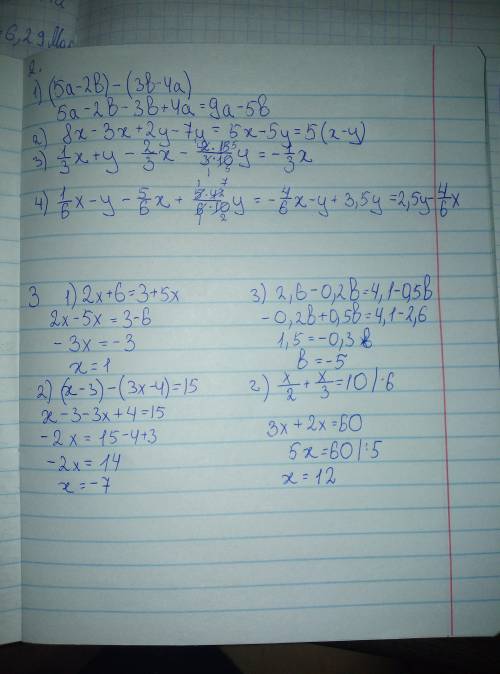 6,29 Mac
2.
1) (5a-2b)-(3b-4a)
5a-2b-3b+4a=9a-5b
2) 8x-3x+2y-7y=5x-5y=5(x-y)
3) 1/3 x+y-2/3 x- y=-1/3 x
4) 1/6 x-y-5/6 x+ y=-4/6 x-y+3,5y=2,5y-4/6 x
3 1) 2x+6=3+5x
2x-5x=3-6
-3x=-3
x=1
2) (x-3)-(3x-4)=15
x-3-3x+4=15
-2x=15-4+3
-2x=14
x=-7
3) 2,6-0,2b=4,1-0,5b
-0,2b+0,5b=4,1-2,6
1,5=-0,3b
b=-5
2) x/2+x/3=10/·6
3x+2x=60
5x=60/:5
x=12